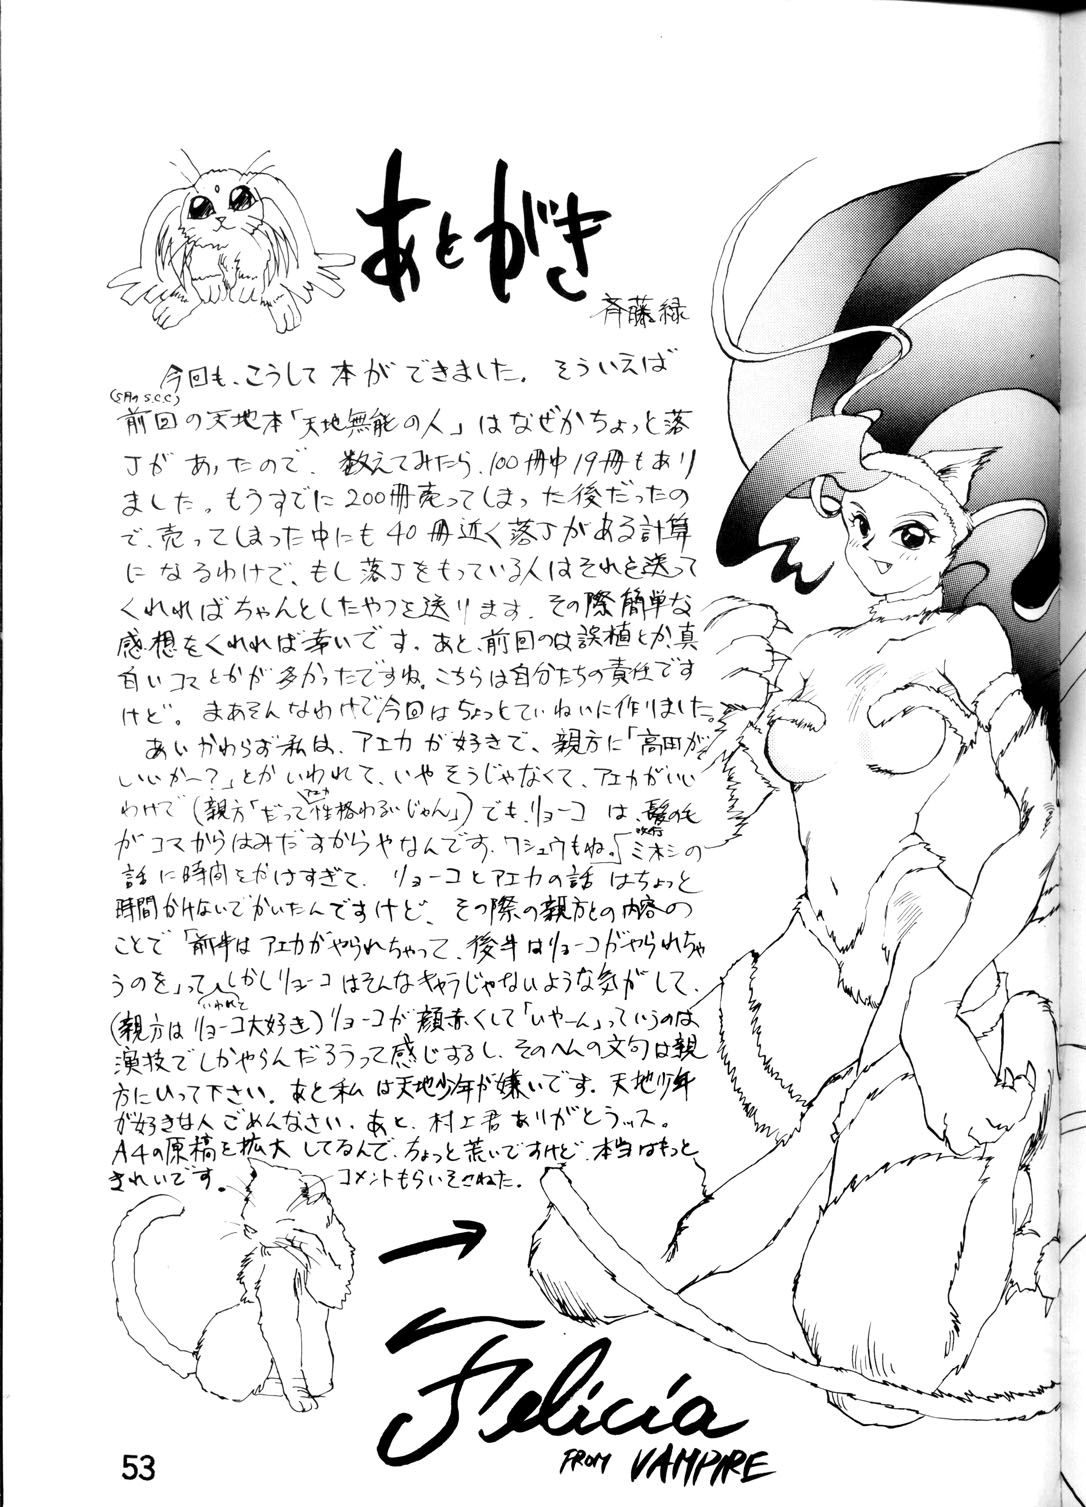 あとがき
斉藤緑
今回も、こうして本ができました。そういえば
(5月のS.C.C)
前回の天地本「天地無能の人」はなぜかちょっと落
丁があったので、数えてみたら、100冊中19冊もあり
ました。もうすでに200冊売ってしまった後だったの
で、売ってしまった中にも40冊近く落丁がある計算
になるわけで、もし落丁をもっている人はそれを送って
くれればちゃんとしたやつを送ります。その際簡単な
感想をくれれば幸いです。あと、前回のは誤植とか、真
白いコマとかが多かったですね。こちらは自分たちの責任です
けど。まあそんなわけで今回はちょっとていねいに作りました。
あいかわらず私は、アエカが好きで、親方に「高田が
いいかー?」とかいわれて、いやそうじゃなくて、アエカがいい
アエカ
わけで(親方「だって性格わるいじゃん」)でも、リョーコは、髪の毛
がコマからはみだすからやなんです。ワシュウもね。「ミホシの
話に時間をかけすぎて、リョーコとアエカの話はちょっと
時間かけないでかいたんですけど、その際の親方との内容の
ことで「前半はアエカがやられちゃって、後半はリョーコがやられちゃ
うのを」って しかしリョーコはそんなキャラじゃないような気がして、
いわれて
(親方はリョーコ大好き)リョーコが顔赤くして「いやーん」っていうのは
演技でしかやらんだろうって感じするし、そのへんの文句は親
方にいって下さい。あと私は天地少年が嫌いです。天地少年
が好きな人ごめんなさい。あと、村上君ありがとうッス。
A4の原稿を拡大してるんで、ちょっと荒いですけど、本当はもっと
きれいです。
コメントもらいそこねた。
Felicia
FROM VAMPIRE
53